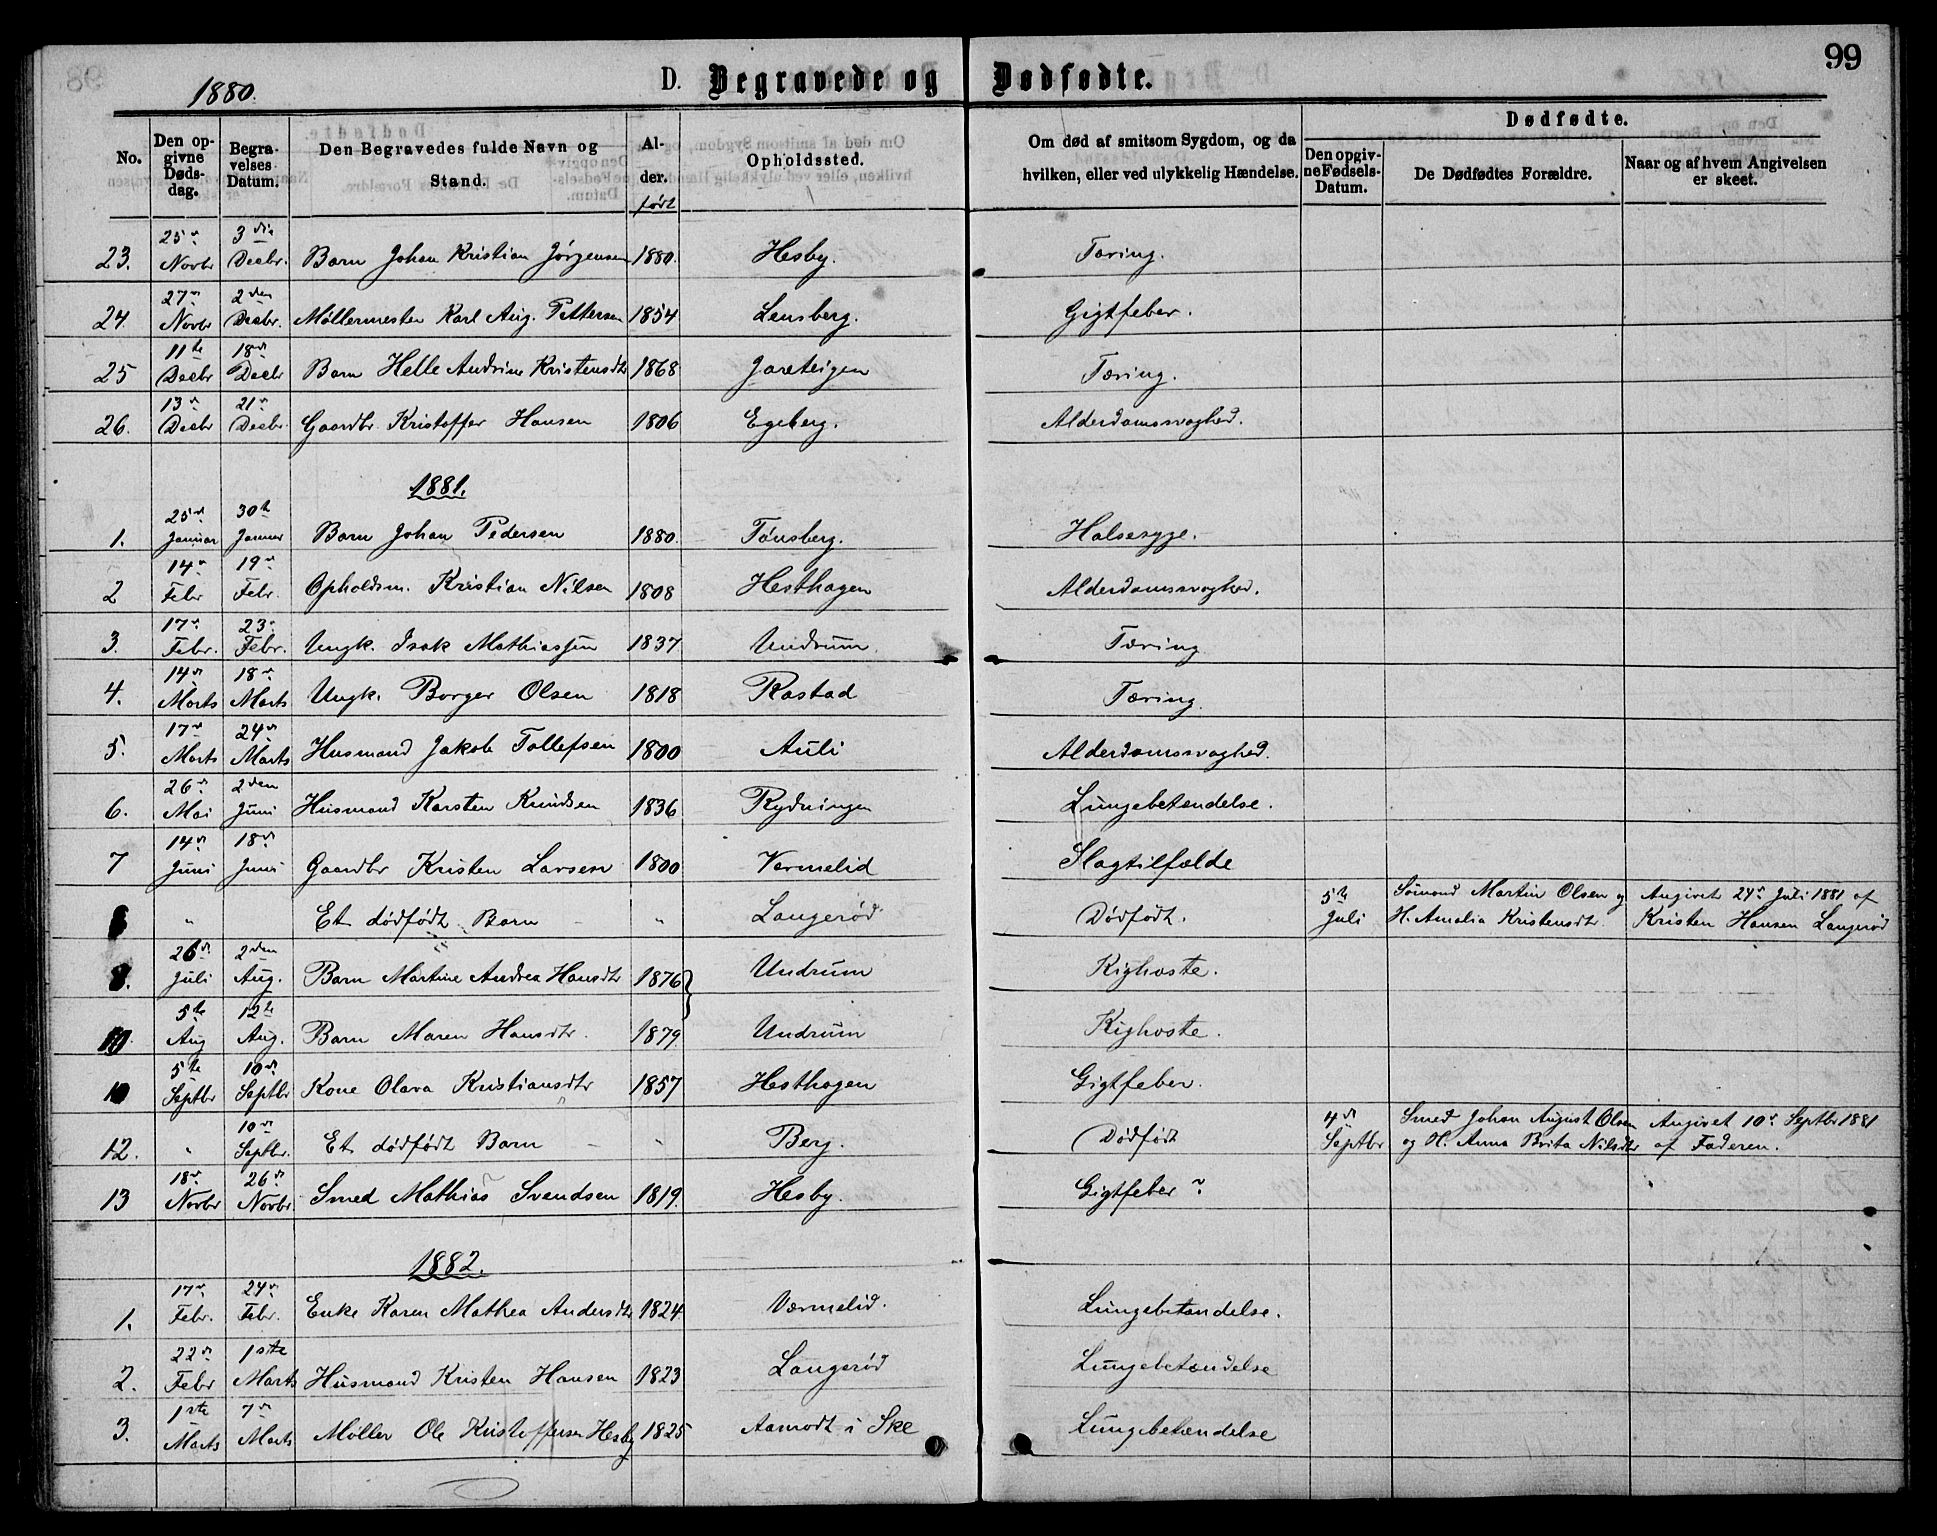 1880. D. Begravede og Dødfødte. 99
No. Den opgivne Dødsdag. Begravelses Datum. Den Begravedes fulde Navn og Stand. Alder. født Opholdssted. Om død af smitsom Sygdom, og da hvilken, eller ved ulykkelig Hændelse. Dødfødte. Den opgivne Fødsels-Datum. De Dødfødtes Forældre. Naar og af hvem Angivelsen er skeet.
23. 25 Novbr 3die Decbr. Barn Johan Kristian Jørgensen 1880. Hesby. Tæring.
24. 27 Novbr 2den Decbr. Møllermester Karl Aug. Pettersen 1854 Lensberg. Gigtfeber.
25 11te Decbr 18 Decbr Barn Helle Andrine Kristensdtr 1868 Jareteigen Tæring.
26. 13 Decbr 21 Decbr. Gaardbr. Kristoffer Hansen 1806 Egeberg. Alderdomssvaghed.
1881.
1. 25 Januar 30te Januar Barn Johan Pedersen 1880. Tønsberg. Halsesyge.
2 14 Febr 19 Febr. Opholdsm. Kristian Nilsen 1808 Hesthagen Alderdomssvaghed.
3. 17 Febr. 23 Febr. Ungk. Isak Mathiassen 1837 Undrum. Tæring
4. 14 Marts 18 Marts Ungk. Borger Olsen 1818 Rastad Tæring.
5. 17 Marts 24 Marts Husmand Jakob Tollefsen 1800 Auli Alderdomssvaghed.
6. 26 Mai 2den Juni Husmand Karsten Knudsen 1836 Rydningen Lungebetændelse.
7 14 Juni 18 Juni Gaardbr Kristen Larsen 1800 Vermelid Slagtilfælde
" Et dødfødt Barn - " Langerød Dødfødt. 5te Juli Sømand Martin Olsen og H. Amalia Kristensdtr. Angivet 24 Juli 1881 af Kristen Hansen Langerød
8. 26 Juli 2den Aug. Barn Martine Andrea Hansdtr 1876 Undrum Kighoste.
10. 5te Aug 12te Aug. Barn Maren Hansdtr. 1879. Undrum Kighoste.
10 5te Septbr 10 Septbr Kone Olava Kristiansdtr 1857 Hesthagen Gigtfeber.
12. " 10 Septbr. Et dødfødt Barn - - Berg. Dødfødt 4 Septbr Smed Johan August Olsen og H. Anna Brita Nilsdtr Angivet 10 Septbr 1881 af Faderen.
13 18 Novbr 26 Novbr. Smed Mathias Svendsen 1819. Hesby. Gigtfeber ?
1882.
1. 17 Febr. 24 Febr. Enke Karen Mathea Andersdtr 1824. Værmelid. Lungebetændelse.
2. 22 Febr 1ste Marts Husmand Kristen Hansen 1823 Langerød Lungebetændelse
3. 1ste Marts 7 Marts Møller Ole Kristoffersen Hesby 1825 Aamodt i Ske Lungebetændelse